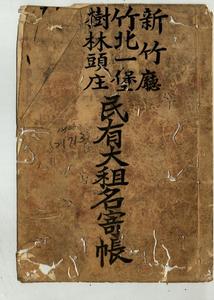 新竹廳
竹北一堡
樹林頭庄
民有大租名寄帳